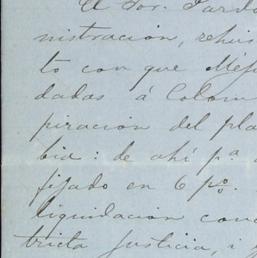 El Sor. Pardo
nistración, rehus
to con que Méji
dadas á Colom
piración del pla
bia: de ahí pa. a
fijado en 6 po.
liquidación con
tricta justicia, i